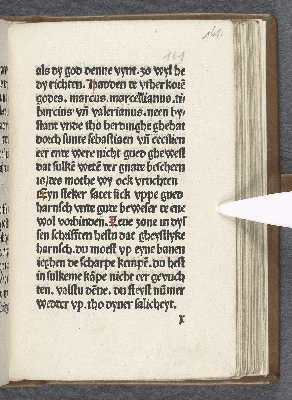 161.
161
als dy god denne vynt. zo wyl he
dy richten. Hadden te vther korē
godes. marcus. marcellianus. ti-
burcius vñ valerianus. neen by-
stant vnde tho herdinghe ghehat
dorch sunte sebastiaen vñ cecilien
eer ente were nicht gued ghewest
dat sulke wete ter gnate beschern
is/des mothe wy ock vruchten
Eyn steker satet sick vppe gued
harnsch vnte gute beweser te ene
wol vorbinden. Leue zone in dys
sen schrifften hestu dat gheystlyke
harnsch. du most vp eyne banen
ieghen de scharpe kempē. du hest
in sulkeme kāpe nicht eer gevoch
ten. valstu dēne. du steyst nūmer
wedder vp. tho dyner salicheyt.